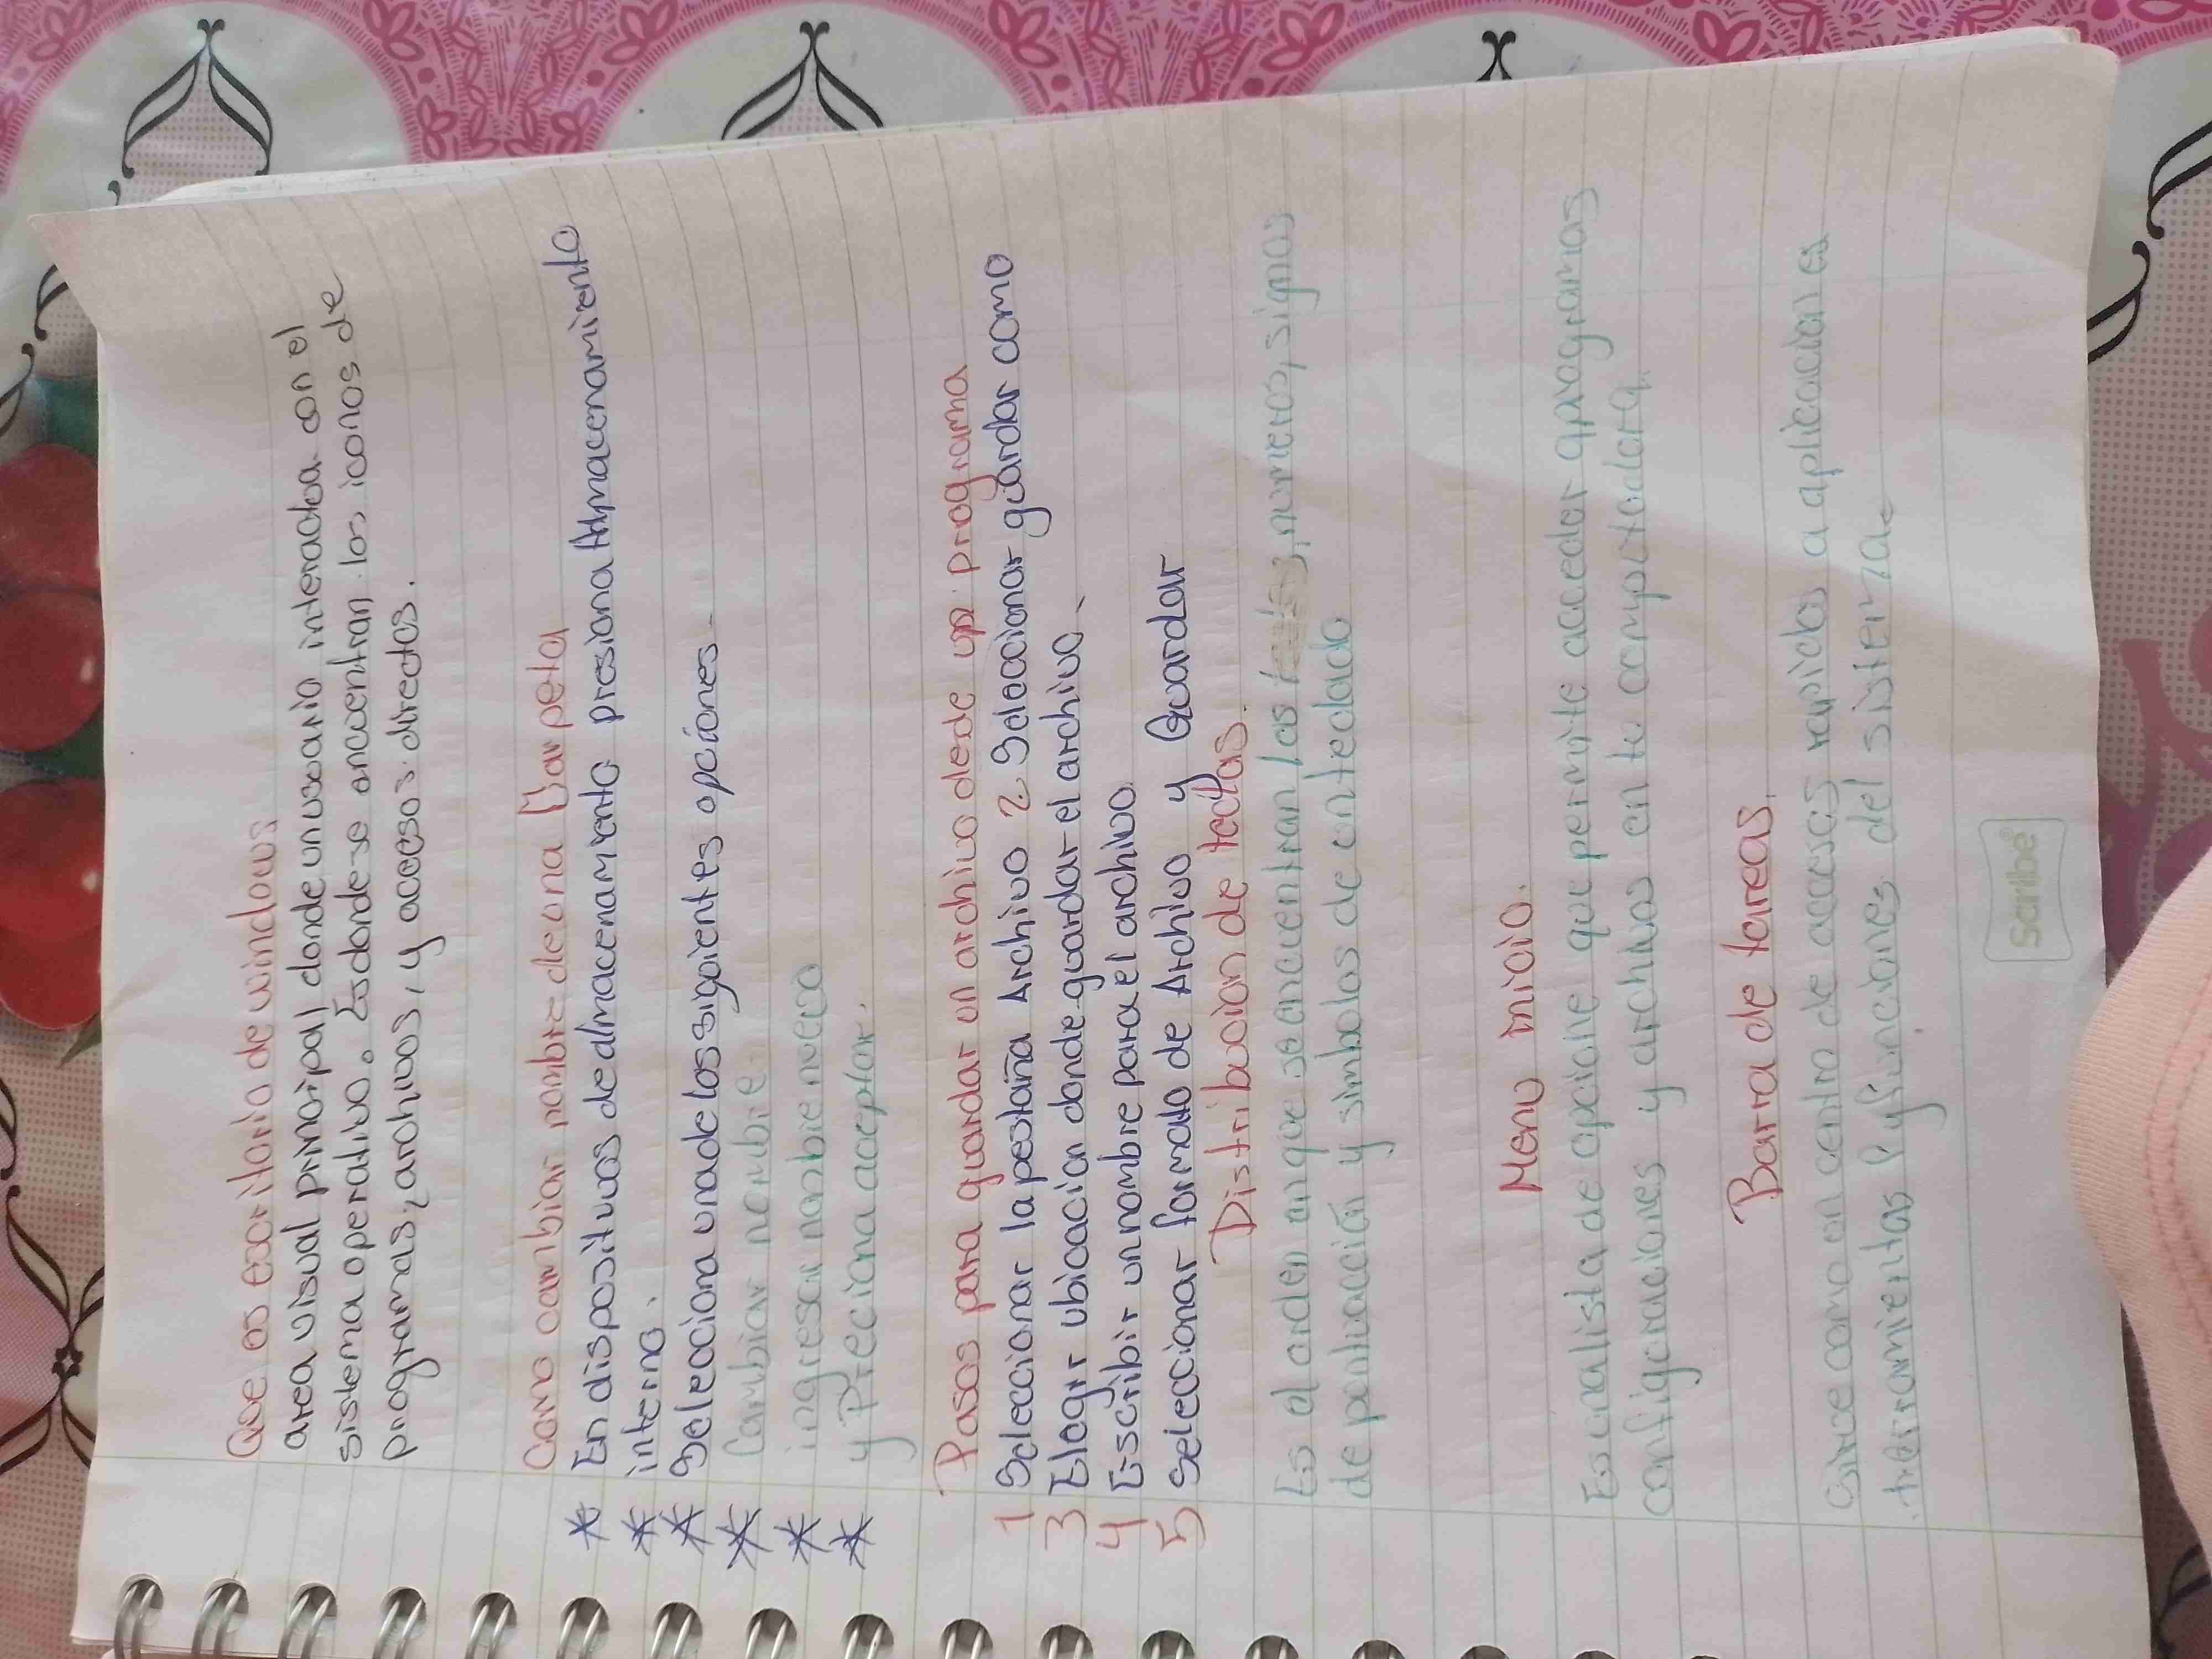 Que es escritorio de windows
area visual principal donde un usuario interactua con el
sistema operativo. Es donde se encuentran los iconos de
programas, archivos, y accesos directos.
Como cambiar nombre de una Carpeta
* En dispositivos de almacenamiento presiona Almacenamiento
* interno.
* Selecciona una de los siguientes opciones
* Cambiar nombre.
* ingresar nombre nuevo
* y Preciona aceptar.
Pasos para guardar un archivo desde un programa
1 Seleccionar la pestaña Archivo 2 Seleccionar guardar como
3 Elegir ubicacion donde guardar el archivo
4 Escribir un nombre para el archivo
5 Seleccionar formato de Archivo y Guardar
Distribucion de teclas.
Es el orden en que se encuentran las , numeros, signos
de puntuación y simbolos de un teclado
Menu inicio.
Es una lista de opcione que permite acceder a programas
configuraciones y archivos en te computadora.
Barra de tareas.
Sirve como un centro de accesos rapidos a aplicaciones
herramientas y funciones del sistema
Scribe®